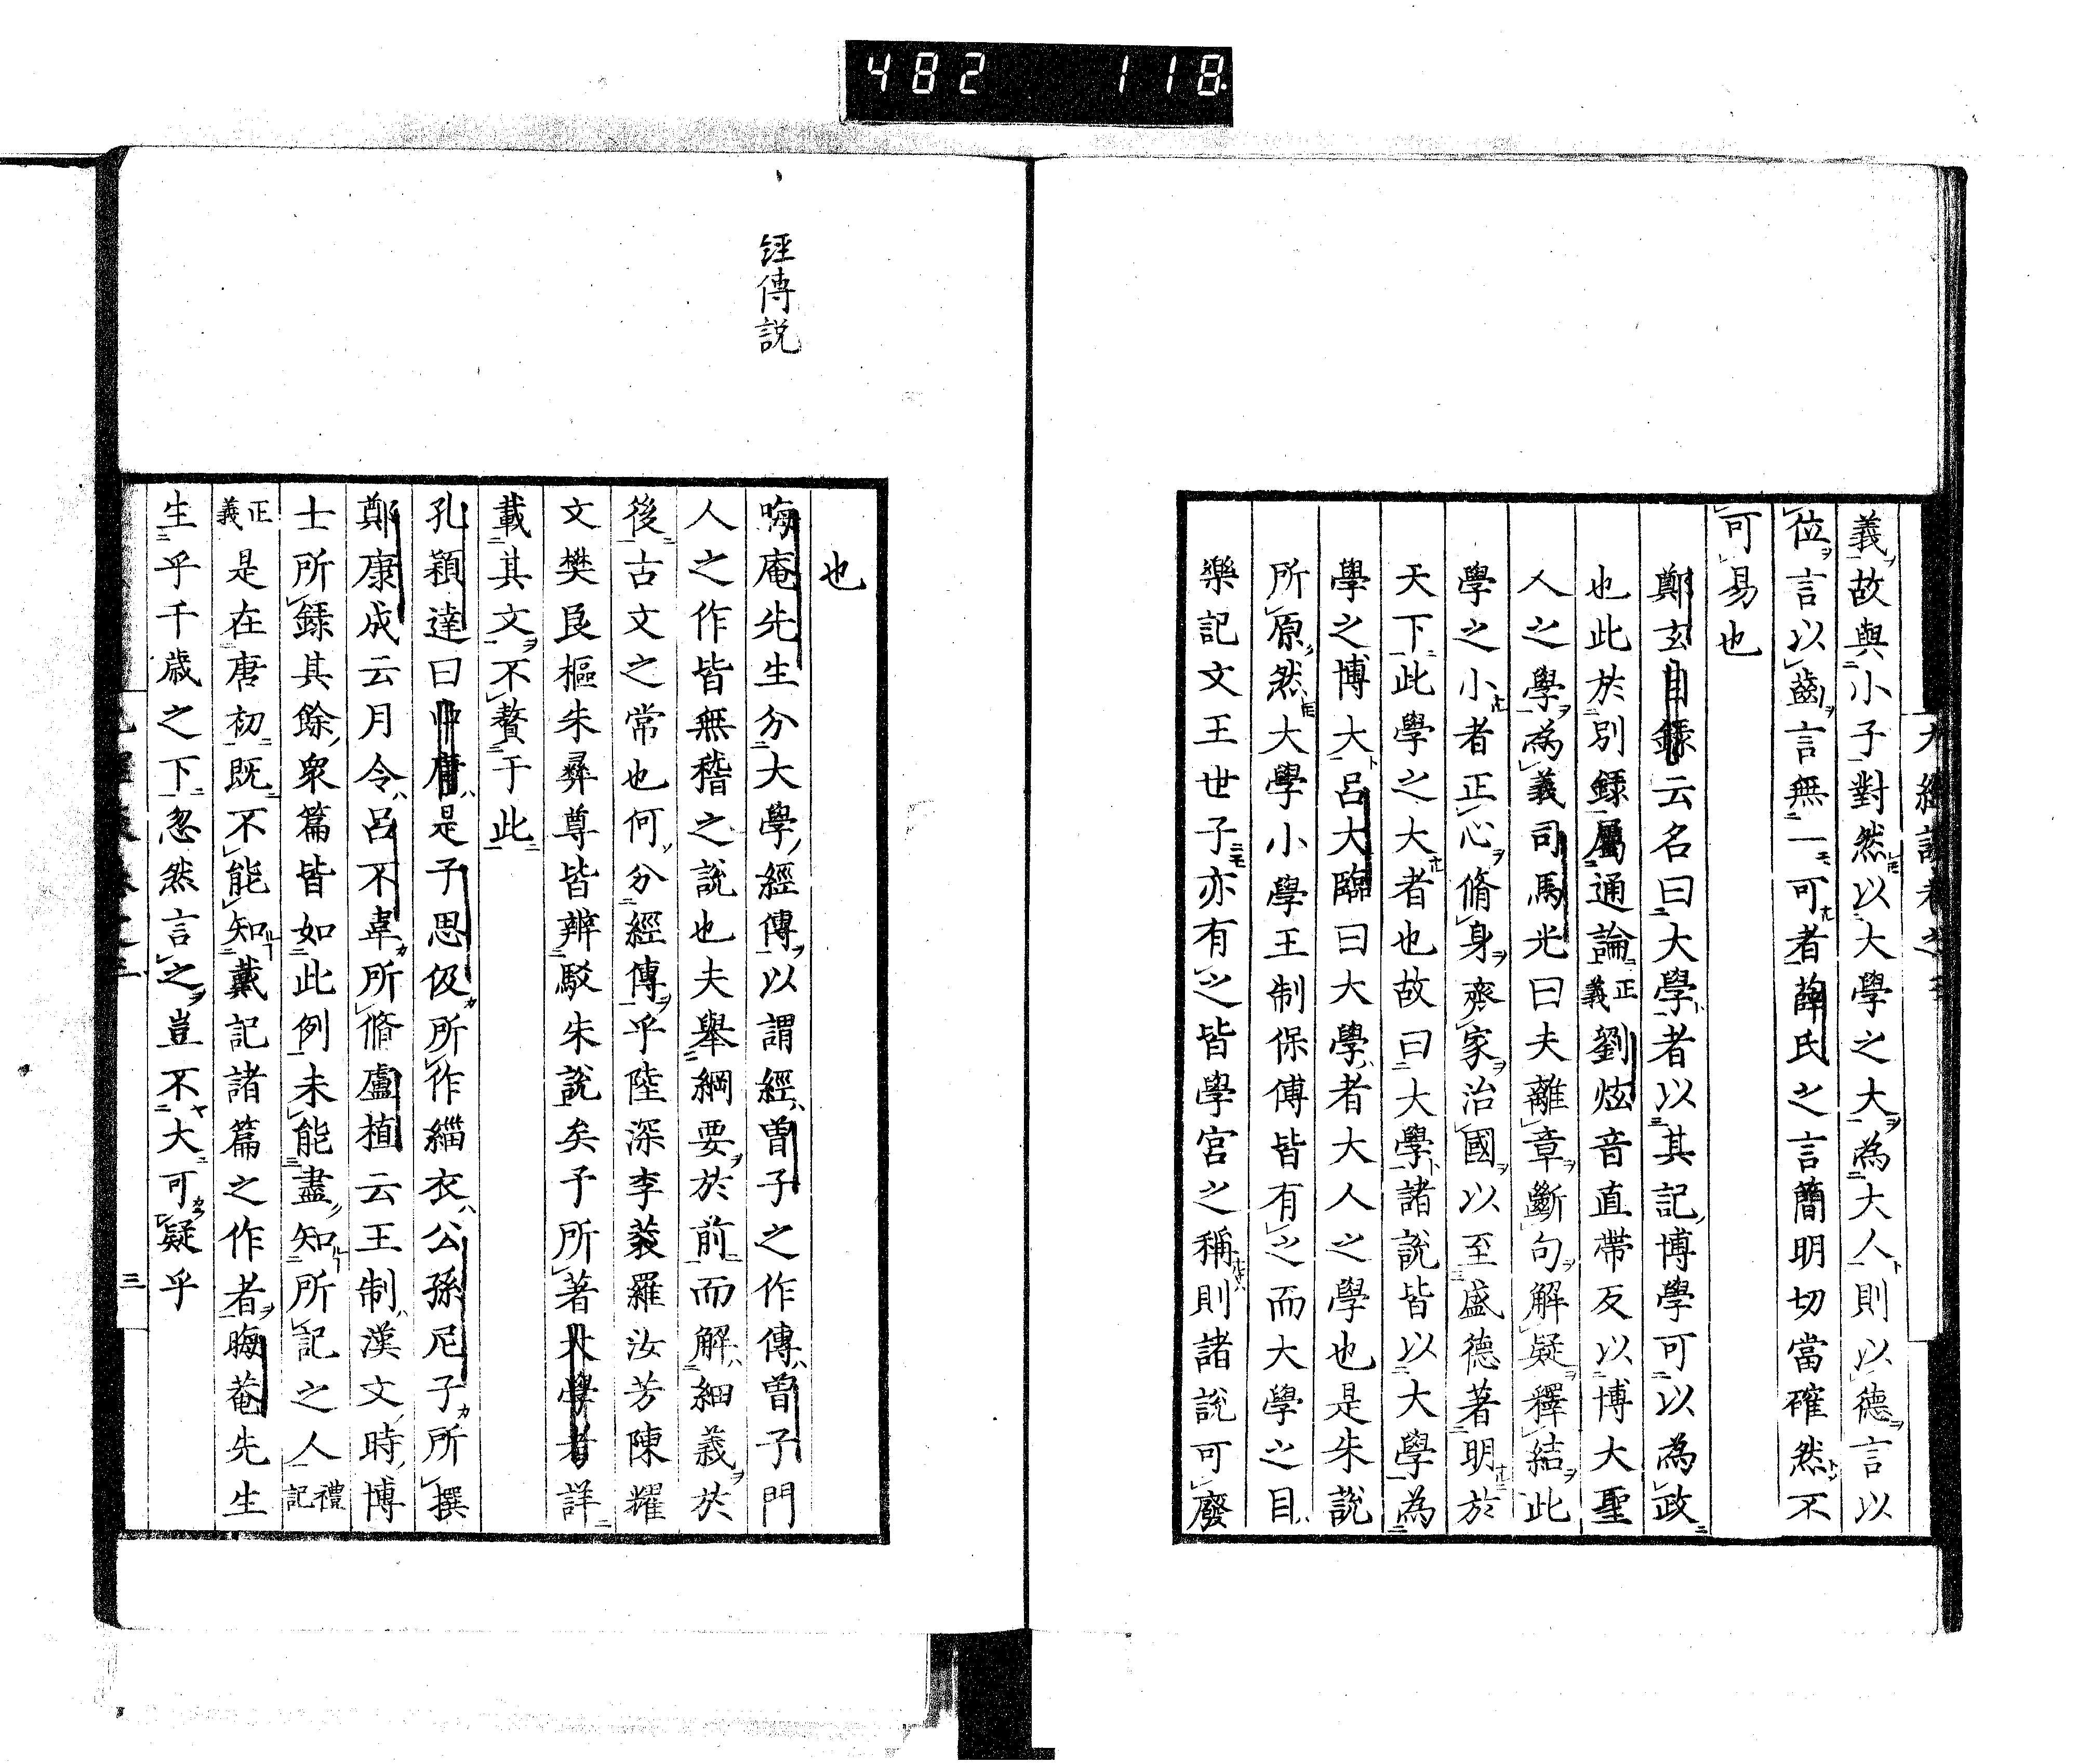 482 118
義故與小子對然以大學之大為大人則以德言以
位言以齒言無一可者薛氏之言簡明切當確然不
可易也
鄭玄目錄云名曰大學者以其記博學可以為政
也此於別錄屬通論正義劉炫音直帶反以博大聖
人之學為義司馬光曰夫離章斷句解疑釋結此
學之小者正心脩身齊家治國以至盛德著明於
天下此學之大者也故曰大學諸說皆以大學為
學之博大呂大臨曰大學者大人之學也是朱說
所原然大學小學王制保傅皆有之而大學之目
樂記文王世子亦有之皆學宮之稱則諸說可廢
也
經傳説
晦庵先生分大學經傳以謂經曽子之作傳曽子門
人之作皆無稽之說也夫舉綱要於前而解細義於
後古文之常也何分經傳乎陸深李蓘羅汝芳陳耀
文樊良樞朱彝尊皆辨駁朱說矣予所著大學考詳
載其文不贅于此
孔穎達曰中庸是子思伋所作緇衣公孫尼子所撰
鄭康成云月令呂不韋所脩盧植云王制漢文時博
士所錄其餘衆篇皆如此例未能盡知所記之人禮記
正義是在唐初既不能知戴記諸篇之作者晦菴先生
生乎千歳之下忽然言之豈不大可疑乎
三